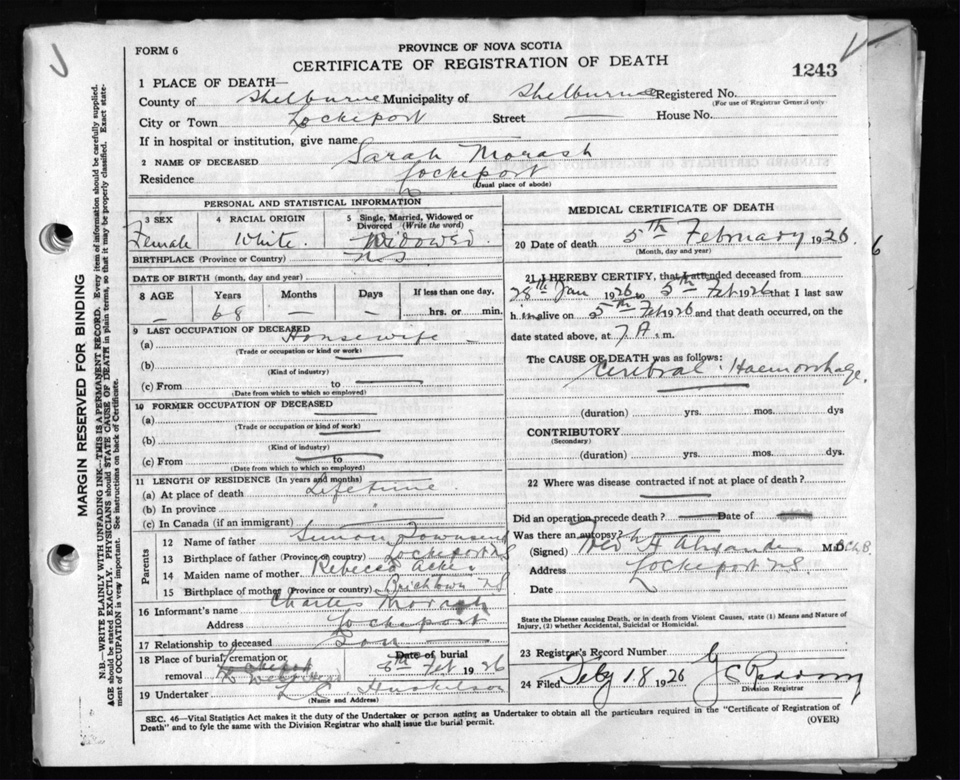 PROVINCE OF NOVA SCOTIA
FORM 6
CERTIFICATE OF REGISTRATION OF DEATH
1243
1 PLACE OF DEATH—
County of Shelburne Municipality of Shelburne Registered No.
(For use of Registrar General only
City or Town Lockeport Street — House No.
If in hospital or institution, give name
2 NAME OF DECEASED Sarah Morash
Residence Lockeport
(Usual place of abode)
PERSONAL AND STATISTICAL INFORMATION
3 SEX Female
4 RACIAL ORIGIN White.
5 Single, Married, Widowed or Divorced (Write the word) Widowed.
BIRTHPLACE (Province or Country) N.S.
DATE OF BIRTH (month, day and year)
8 AGE Years Months Days If less than one day,
— 68 — — hrs. or min.
9 LAST OCCUPATION OF DECEASED
(a) Housewife —
(Trade or occupation or kind or work)
(b)
(Kind of industry)
(c) From to
(Date from which to which so employed)
10 FORMER OCCUPATION OF DECEASED
(a)
(Trade or occupation or kind of work)
(b)
(Kind of industry)
(c) From to
(Date from which to which so employed)
11 LENGTH OF RESIDENCE (In years and months)
(a) At place of death Lifetime
(b) In province
(c) In Canada (if an immigrant)
Parents
12 Name of father Simon Townsend
13 Birthplace of father (Province or country) Lockeport NS
14 Maiden name of mother Rebecca Acker
15 Birthplace of mother (Province or country) N.S.
16 Informant's name Charles Morash
Address Lockeport
17 Relationship to deceased Son
18 Place of burial, cremation or removal
Date of burial
6th Feb 1926
19 Undertaker L.C. Huskilson
(Name and Address)
MEDICAL CERTIFICATE OF DEATH
20 Date of death 5th February 1926
(Month, day and year)
21 I HEREBY CERTIFY, that I attended deceased from
28th Jan 1926 to 5th Feb 1926 that I last saw
h im alive on 5th Feb 1926 and that death occurred, on
the date stated above, at 7 A. m.
The CAUSE OF DEATH was as follows:
Cerebral Haemorrhage.
(duration) yrs. mos. dys
CONTRIBUTORY
(Secondary)
(duration) yrs. mos. dys.
22 Where was disease contracted if not at place of death?
Did an operation precede death? Date of
Was there an autopsy?
(Signed) M.B.Ch.B.
Address Lockeport N.S.
Date
State the Disease causing Death, or in death from Violent Causes, state (1) Means and Nature of
Injury, (2) whether Accidental, Suicidal or Homicidal.
23 Registrar's Record Number
24 Filed Feby 18 1926
Division Registrar
SEC. 46—Vital Statistics Act makes it the duty of the Undertaker or person acting as Undertaker to obtain all the particulars required in the "Certificate of Registration of
Death" and to fyle the same with the Division Registrar who shall issue the burial permit. (OVER)
MARGIN RESERVED FOR BINDING
N.B.—WRITE PLAINLY WITH UNFADING INK—THIS IS A PERMANENT RECORD. Every item of information should be carefully supplied.
AGE should be stated EXACTLY. PHYSICIANS should STATE CAUSE OF DEATH in plain terms, so that it may be properly classified. Exact state-
ment of OCCUPATION is very important. See instructions on back of Certificate.